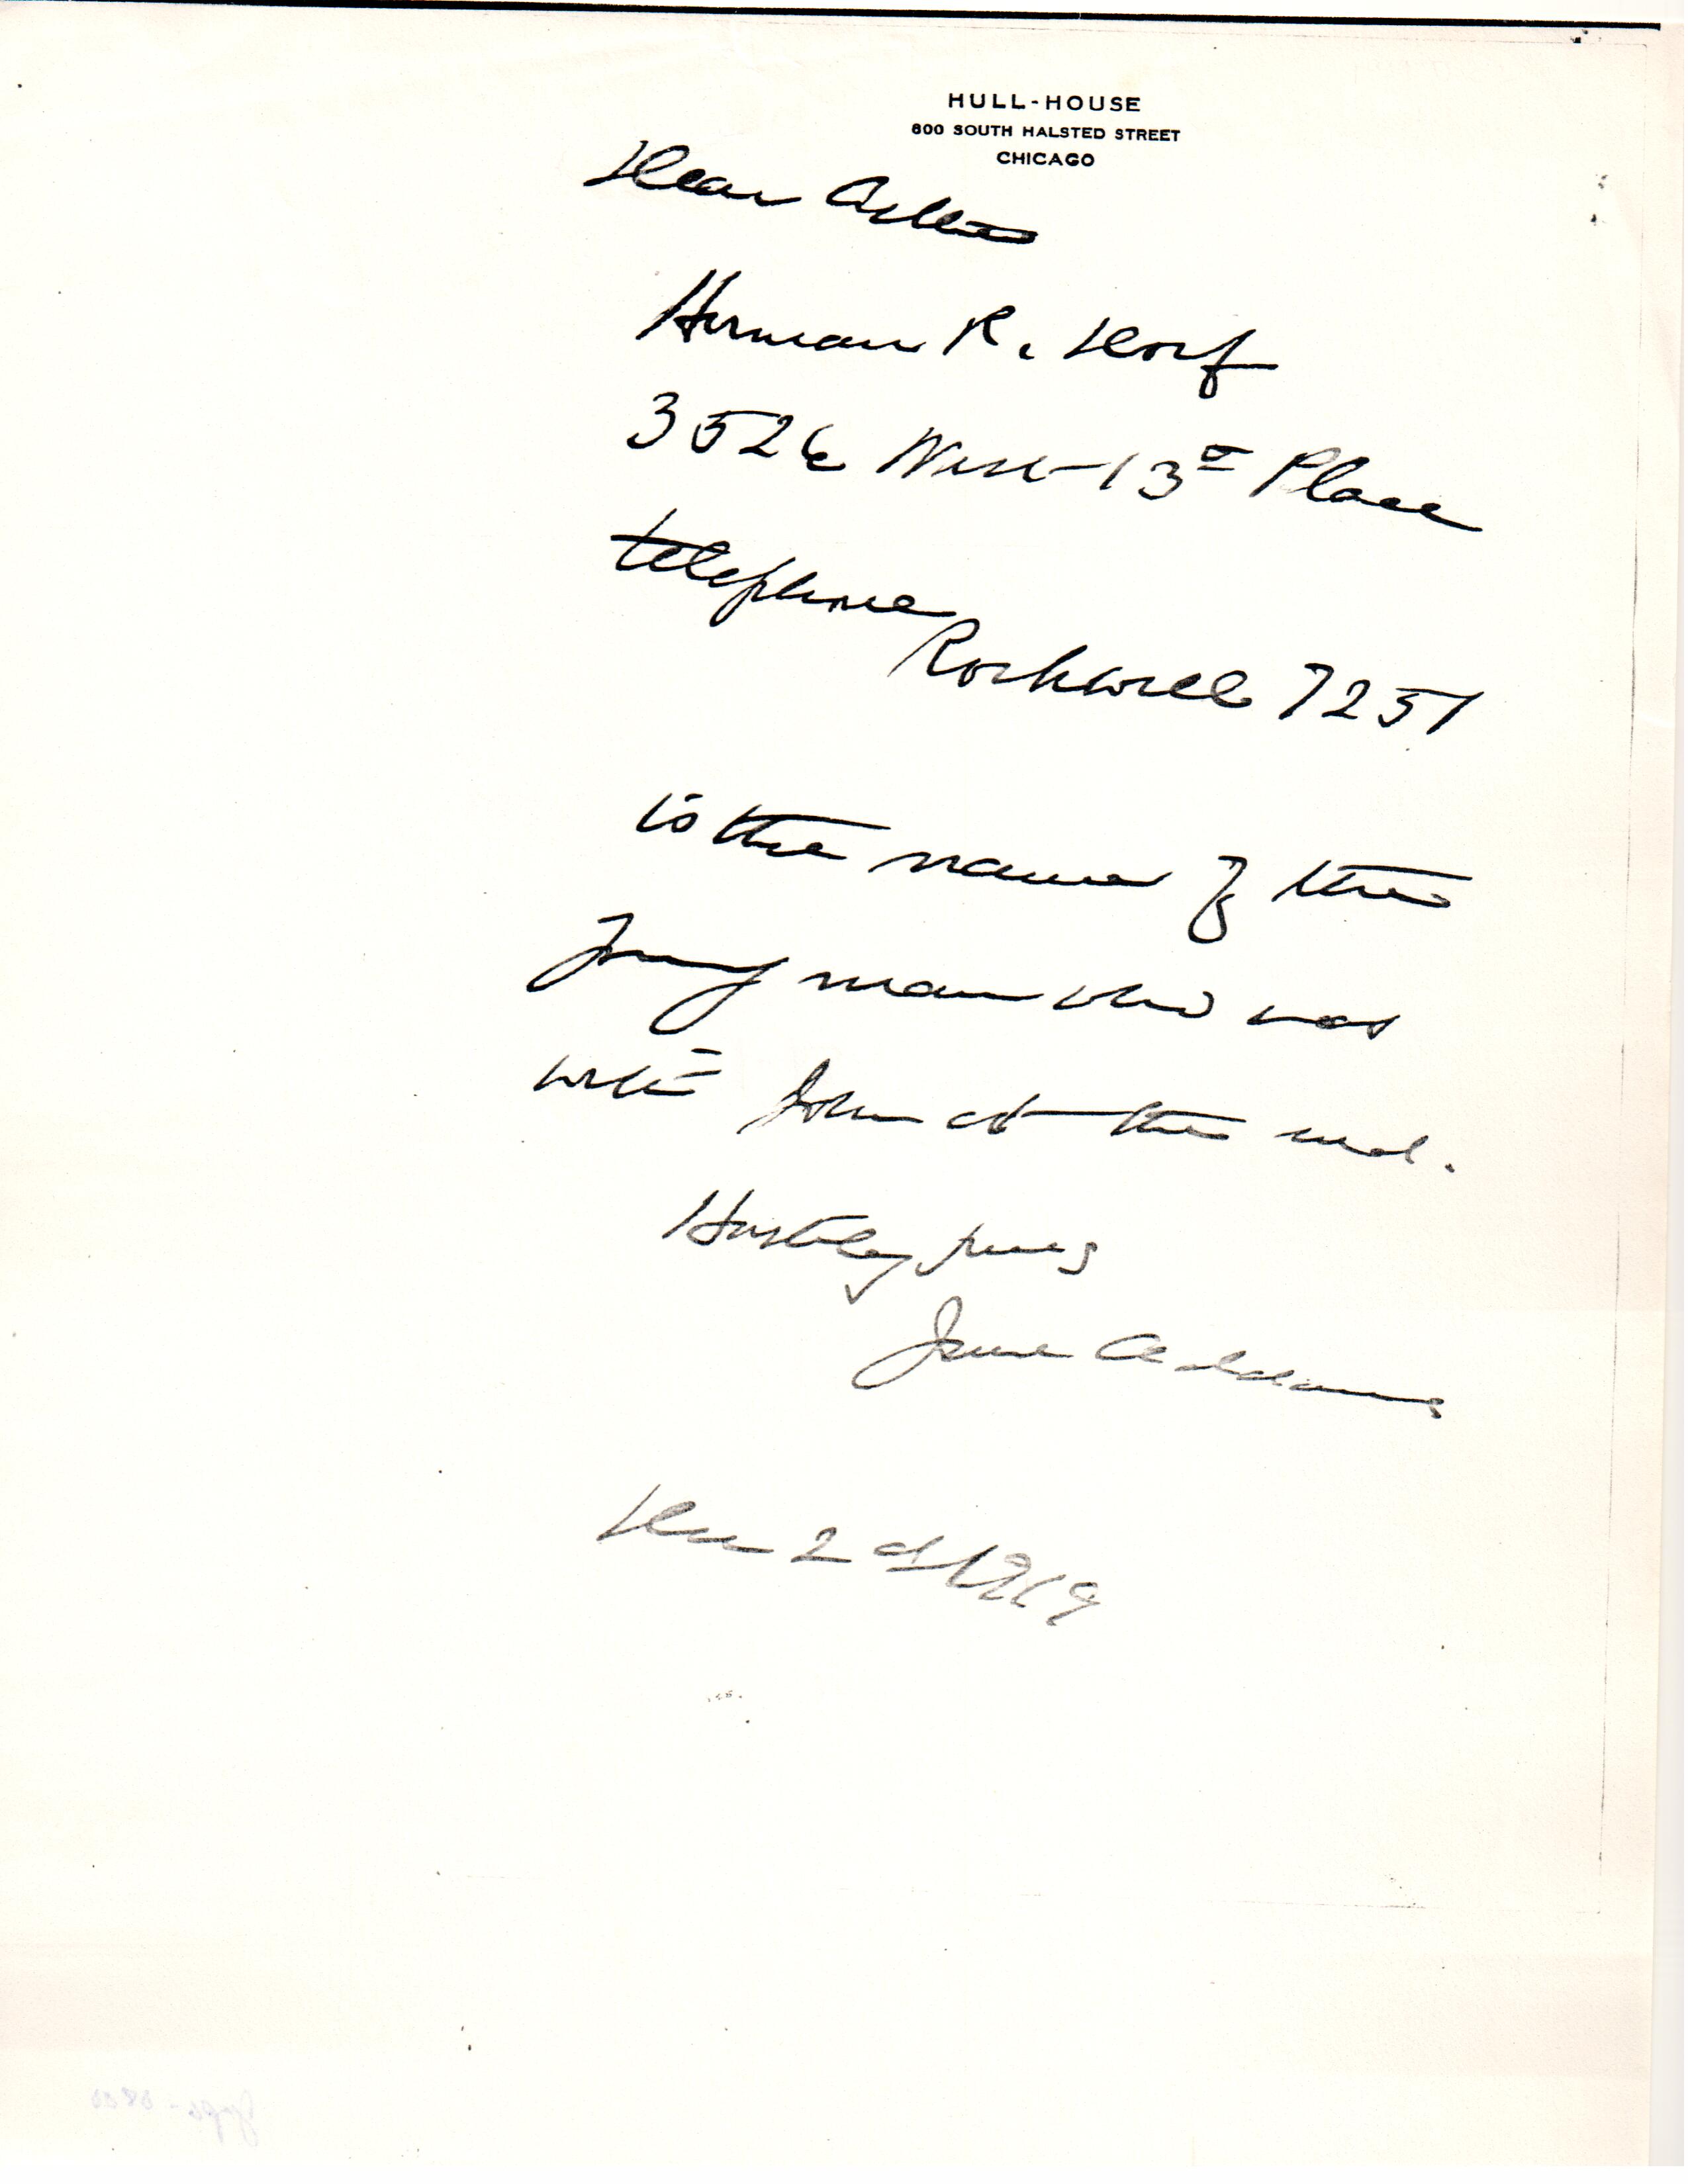 HULL-HOUSE
800 SOUTH HALSTED STREET
CHICAGO
Dear
Herman R. Dorf
3526 West 13th Place
telephone
Rockwell 7251
is the name of the
young man who was
with John at the end.
Hastily yours
Jane Addams
Dec 2d 1919